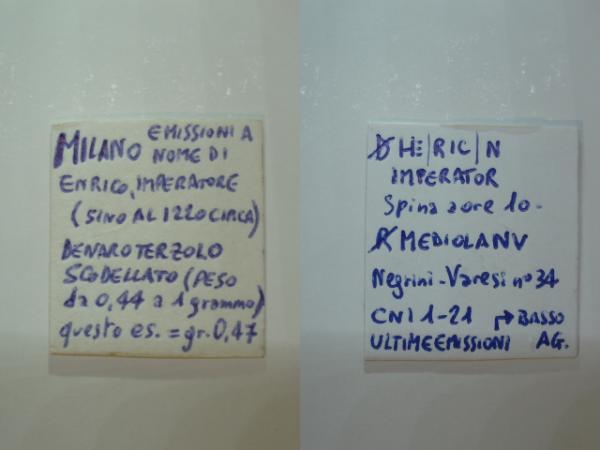 MILANO EMISSIONI A
NOME DI
ENRICO, IMPERATORE
(SINO AL 1220 CIRCA)
DENARO TERZOLO
SCODELLATO (PESO
da 0,44 a 1 grammo)
questo es. = gr. 0,47
D HE|RIC|N
IMPERATOR
Spina 2 ore 10.
R MEDIOLANV
Negrini-Varesi n° 34
CNI 1-21 → BASSO
ULTIME EMISSIONI AG.